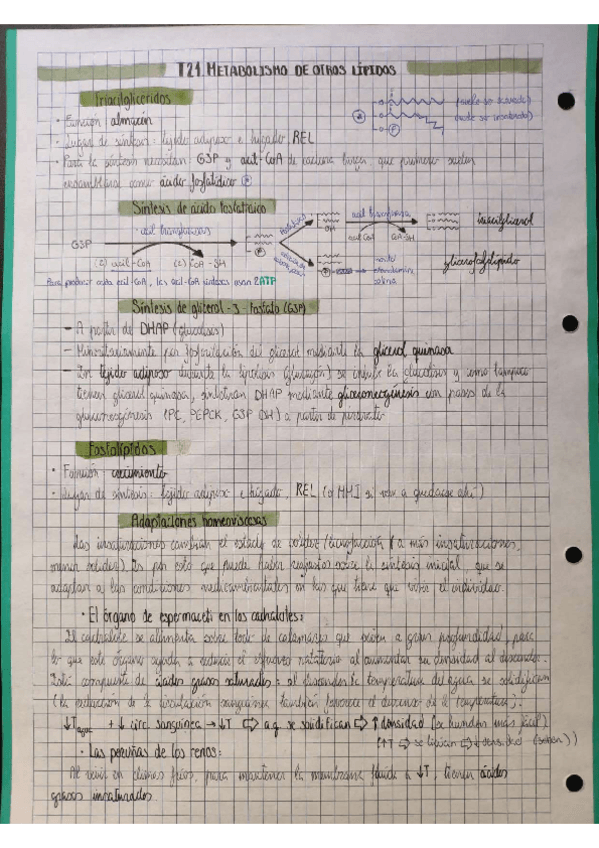 T21. METABOLISMO DE OTROS LÍPIDOS
Triacilglicéridos
· Función: almacén
· Lugar de síntesis: tejido adiposo e hígado, REL
· Para la síntesis necesitan: G3P y acil-CoA de cadena larga, que primero suelen
ensamblarse como ácido fosfatídico
(suele ser saturado)
(suele ser insaturado)
P
Síntesis de ácido fosfatídico
G3P
acil transferasas
(2) acil-CoA
(2) CoA-SH
Para producir cada acil-CoA, las acil-CoA sintetasas usan 2ATP
P
OH
acil transferasa
acil CoA
CoA-SH
triacilglicerol
glicerofosfolípido
etanolamina,
colina
Síntesis de glicerol-3-fosfato (G3P)
– A partir de DHAP (glucólisis)
– Minoritariamente por fosforilación del glicerol mediante la glicerol quinasa
– En tejido adiposo durante la lipólisis (glucagón) se inhibe la glucólisis y como tampoco
tienen glicerol quinasa, sintetizan DHAP mediante gliceroneogénesis con pasos de la
gluconeogénesis (PC, PEPCK, G3P DH) a partir de piruvato
Fosfolípidos
· Función: crecimiento
· Lugar de síntesis: tejido adiposo e hígado, REL (o MMI si van a quedarse ahí)
Adaptaciones homeoviscosas
Las insaturaciones cambian el estado de solidez/licuefacción (a más insaturaciones,
menor solidez). Es por esto que puede haber regulación sobre la síntesis inicial, que se
adaptan a las condiciones medioambientales en las que tiene que vivir el individuo.
· El órgano de espermaceti en los cachalotes:
El cachalote se alimenta sobre todo de calamares que están a gran profundidad, para
lo que este órgano ayuda a reducir el esfuerzo natatorio al aumentar su densidad al descender.
Está compuesto de ácidos grasos saturados: al descender la temperatura del agua se solidifican
(la reducción de la circulación sanguínea también favorece el descenso de la temperatura):
↓T agua + ↓ circ. sanguínea → ↓T ⇨ a.g. se solidifican ⇨ ↑densidad (se hunden más fácil)
(↑T ⇨ se licúan ⇨ ↓densidad (suben))
· Las pezuñas de los renos:
Al vivir en climas fríos, para mantener la membrana fluida a ↓T, tienen ácidos
grasos insaturados